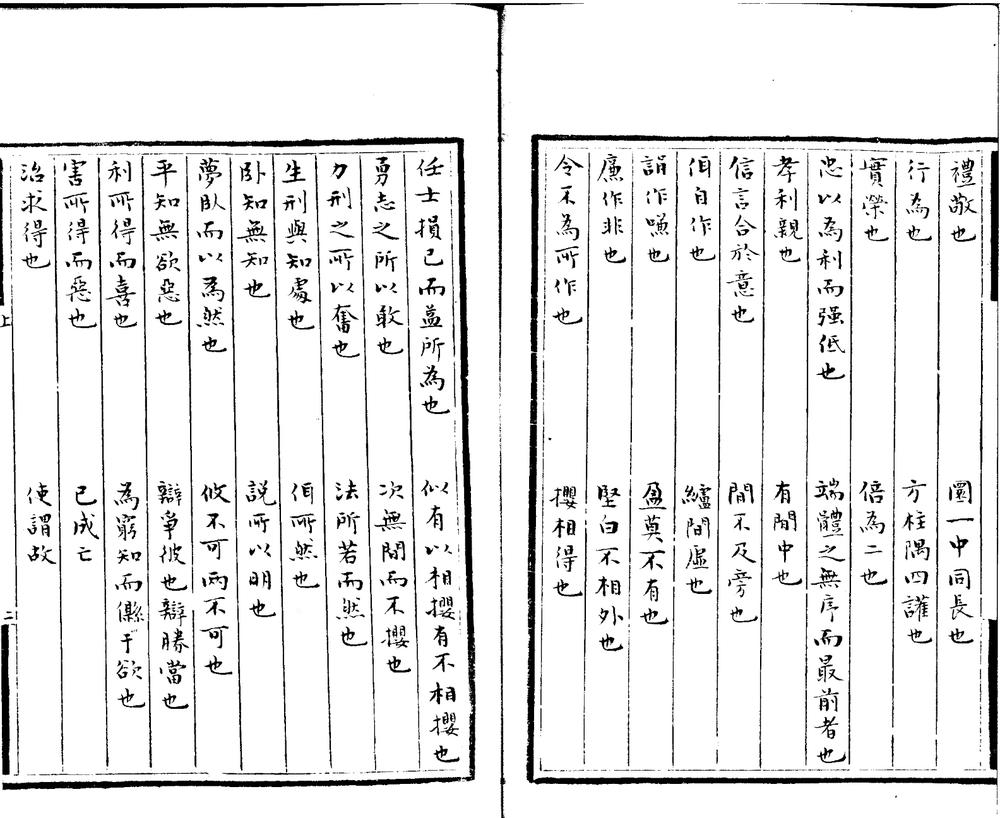 禮敬也 圜一中同長也
行為也 方柱隅四讙也
實榮也 倍為二也
忠以為利而强低也 端體之無序而最前者也
孝利親也 有閒中也
信言合於意也 閒不及旁也
佴自作也 纑閒虛也
誚作嗛也 盈莫不有也
廉作非也 堅白不相外也
令不為所作也 攖相得也
任士損己而益所為也 似有以相攖有不相攖也
勇志之所以敢也 次無閒而不攖也
力刑之所以奮也 法所若而然也
生刑與知處也 佴所然也
卧知無知也 說所以明也
夢臥而以為然也 攸不可兩不可也
平知無欲惡也 辯爭彼也辯勝當也
利所得而喜也 為窮知而縣于欲也
害所得而惡也 已成亡
治求得也 使謂故
上 二